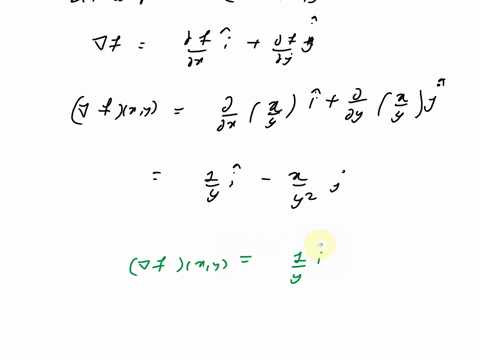 ∇f = ∂f/∂x î + ∂f/∂y ĵ
(∇f)(x,y) = ∂/∂x (x/y) î + ∂/∂y (x/y) ĵ
= 1/y î - x/y² j
(∇f)(x,y) = 1/y i